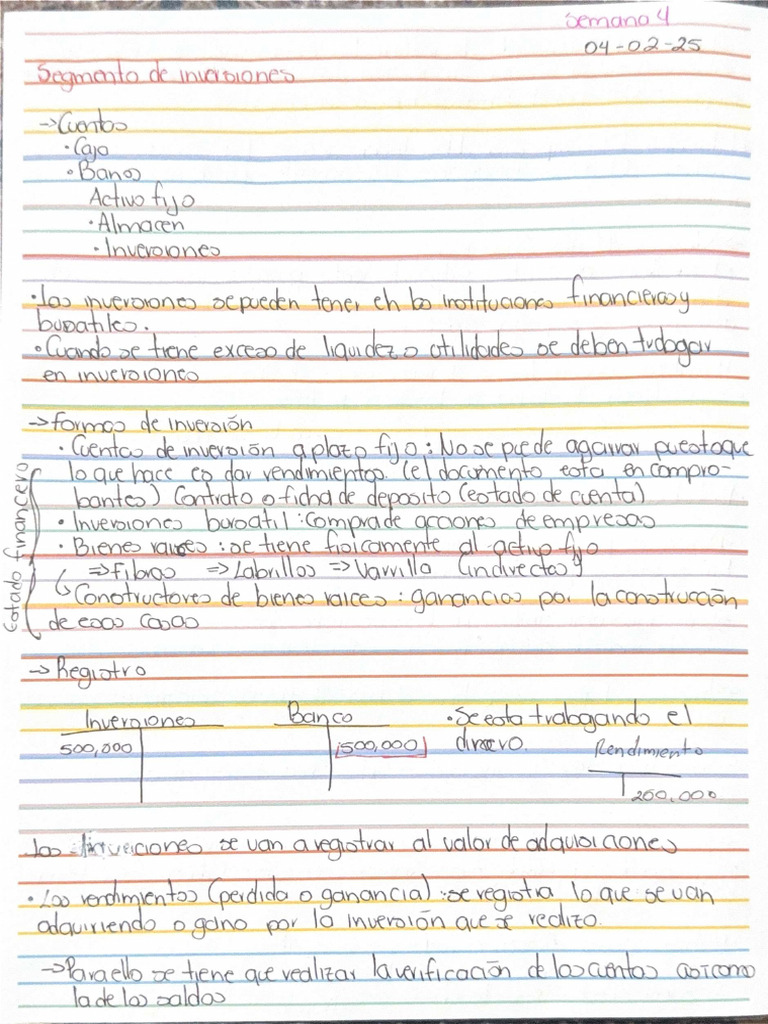 Semana 4
04-02-25
Segmento de inversiones
→Cuentas
·Caja
·Banco
Activo fijo
·Almacen
·Inversiones
·Las inversiones se pueden tener en las instituciones financieras y
bursatiles.
·Cuando se tiene exceso de liquidez o utilidades se deben trabajar
en inversiones
→formas de inversión
·Cuentas de inversión a plazo fijo: No se puede agarrar puesto que
lo que hace es dar rendimientos. (el documento esta en compro-
bantes) Contrato o ficha de deposito (estado de cuenta)
·Inversiones bursatil: compra de acciones de empresas
·Bienes raices: se tiene fisicamente al activo fijo
⇒Fibras ⇒Labrillos ⇒Varrilla (indirectas)
↳Constructores de bienes raices: ganancias por la construcción
de esas casas
Estado financiero
→Registro
Inversiones Banco ·Se esta trabagando el
500,000 500,000 dinero. Rendimiento
200,000
Las inverciones se van a registrar al valor de adquisiciones
·Los rendimientos (perdida o ganancia): se registra lo que se van
adquiriendo o gano por la inversión que se realizo.
→Para ello se tiene que realizar la verificación de las cuentas asi como
la de los saldos